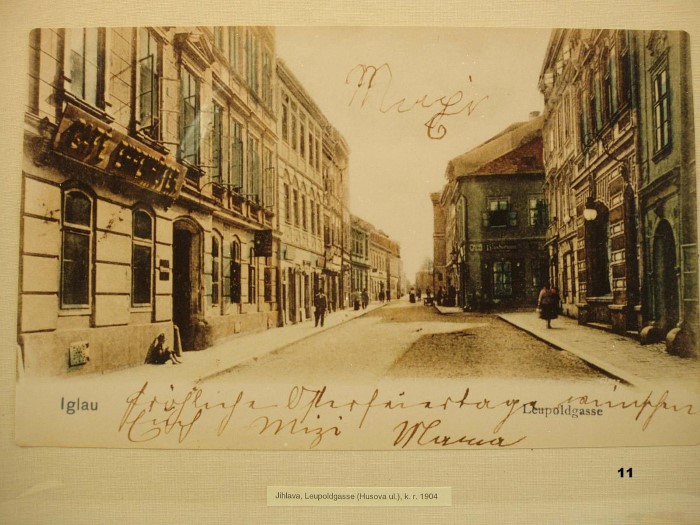 CAFÉ
Mizi
Iglau
Leupoldgasse
Fröhliche Osterfeiertage wünschen
Euch Mizi Mama
11
Jihlava, Leupoldgasse (Husova ul.), k. r. 1904